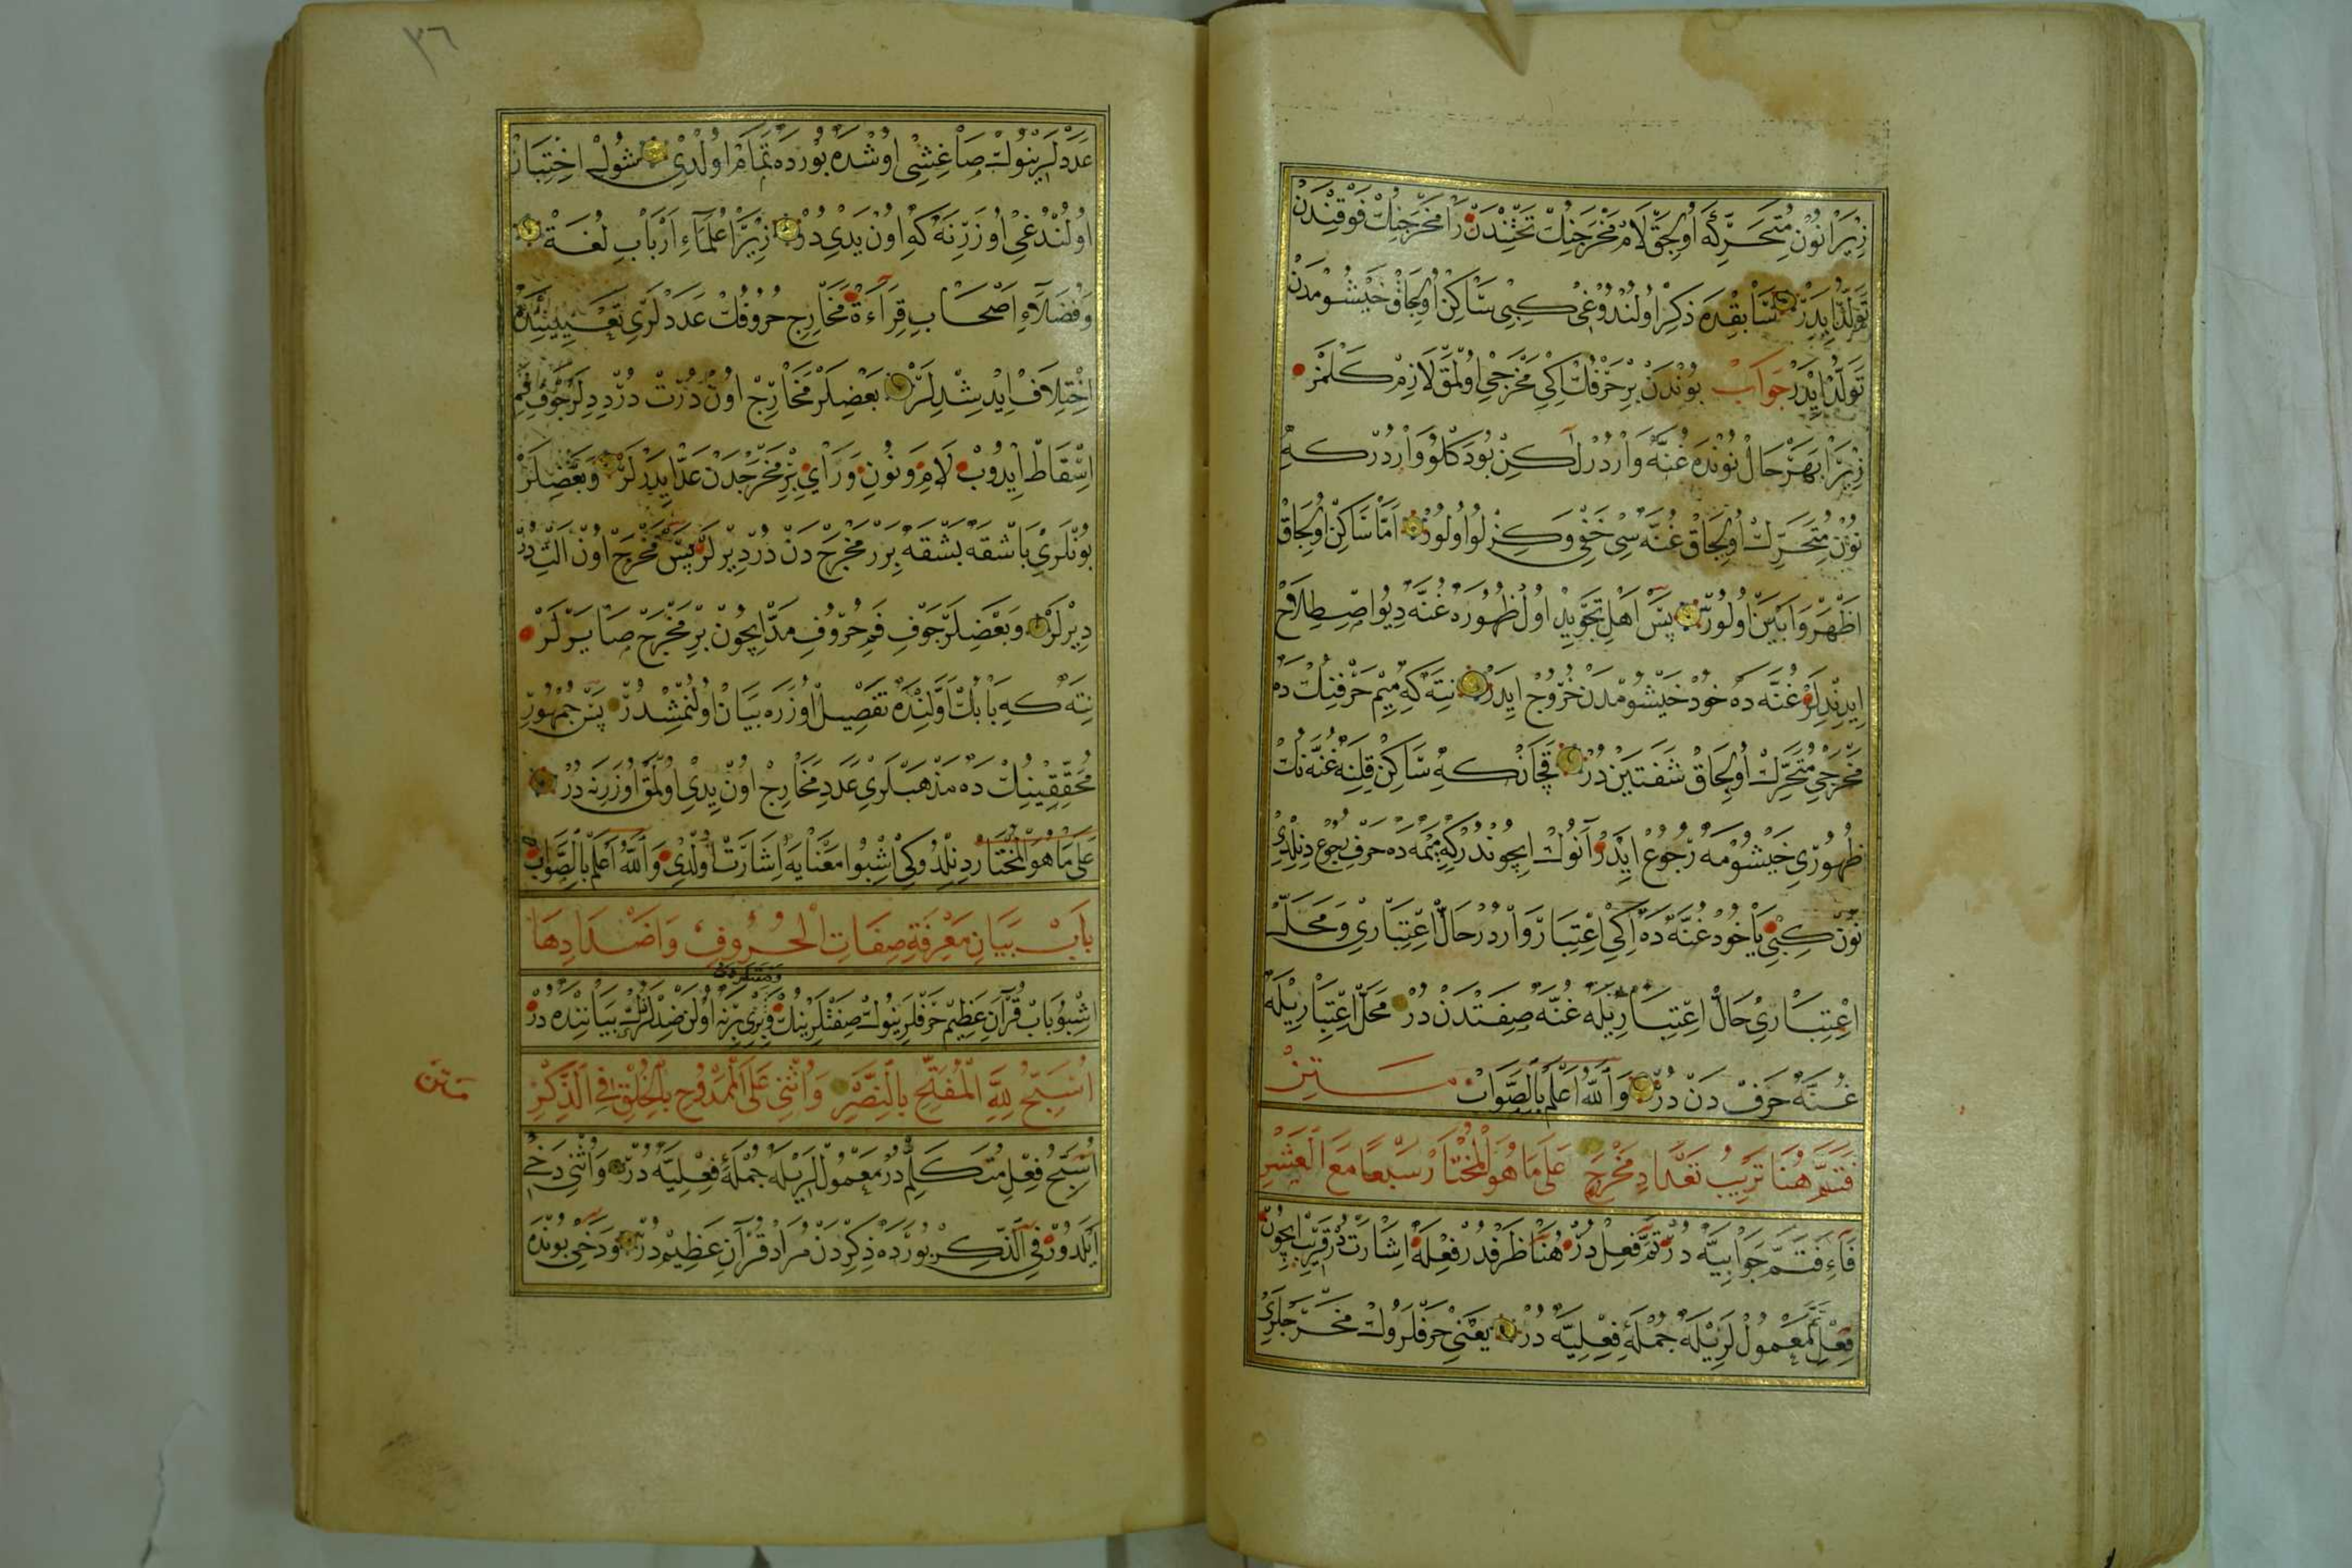 زِيرَا نُونِ مُتَحَرِّكَه اُولِيجَقْ لَامْ مَخْرَجِنِكْ تَحْتِنْدَنْ رَا مَخْرَجِنِكْ فَوْقِنْدَنْ
تَوَلُّدْ اِيدَرْ سَابِقْدَه ذِكِرْ اُولُنْدُوغِى كِبِى سَاكِنْ اُولِيجَاقْ خَيْشُومْدَنْ
تَوَلُّدْ اِيدَرْ جَوَابْ بُونْدَنْ بِرْ حَرْفُكْ اِكِى مَخْرَجِى اُولْمَقْ لَازِمْ كَلْمَزْ
زِيرَا بَهَرْ حَالْ نُونْدَه غُنَّه وَارْدُرْ لٰكِنْ بُودَكْلُو وَارْدُرْ كِه
نُونْ مُتَحَرِّكْ اُولِيجَاقْ غُنَّه سِى خَفِى وَكِزْلُو اُولُورْ اَمَّا سَاكِنْ اُولِيجَاقْ
اَظْهَرْ وَاَبْيَنْ اُولُورْ پَسْ اَهْلِ تَجْوِيدْ اُولْ ظُهُورَه غُنَّه دِيُو اِصْطِلَاحْ
اِيدِنْدِلَرْ غُنَّه دَه خُودْ خَيْشُومْدَنْ خُرُوجْ اِيدَرْ نِتَه كِه مِيمْ حَرْفِنِكْ دَه
مَخْرَجِى مُتَحَرِّكْ اُولِيجَاقْ شَفَتَيْنْ دُرْ قَچَانْ كِه سَاكِنْ قِلِنَه غُنَّه نِكْ
ظُهُورِى خَيْشُومَه رُجُوعْ اِيدَرْ آنُوكْ اِيچُونْدُرْكِه مِيمَه دَه حَرْفِ رُجُوعْ دِينِلْدِى
نُونْ كِبِى يَاخُودْ غُنَّه دَه اِكِى اِعْتِبَارْ وَارْدُرْ حَالْ اِعْتِبَارِى وَمَحَلْ
اِعْتِبَارِى حَالْ اِعْتِبَارِيلَه غُنَّه صِفَتْدَنْ دُرْ مَحَلْ اِعْتِبَارِيلَه
غُنَّه حَرْفْ دَنْ دُرْ وَاللّٰهُ اَعْلَمُ بِالصَّوَابْ مَتِنْ
فَتَمَّ هُنَا تَرْتِيبُ تَعْدَادِ مَخْرَجٍ عَلَى مَا هُوَ الْمُخْتَارُ سَبْعًا مَعَ الْعَشْرِ
فَاءِ فَتَمَّ جَوَابِيَّه دُرْ تَمَّ فِعِلْ دُرْ هُنَا ظَرْفْدُرْ فِعْلَه اِشَارَتْدُرْ قَرِيبْ اِيچُونْ
فِعْلِ تَمَّ مَعْمُولْ لَرِيْلَه جُمْلَۀِ فِعْلِيَّه دُرْ يَعْنِى حَرْفْلَرُوكْ مَخْرَجْلَرِى
٣٦
عَدَدْلَرِينُوكْ صَاغِشِى اوُشْدَه بُورْدَه تَمَامْ اُولْدِى شُولْ اِخْتِيَارْ
اُولُنْدُغِى اوُزَرِنَه كِه اُونْ يَدِى دُرْ زِيرَا عُلَمَاءِ اَرْبَابِ لُغَةْ
وَفُضَلَاءِ اَصْحَابِ قِرَاءَةْ مَخَارِجِ حُرُوفُكْ عَدَدْلَرِى تَعْيِينِنْدَه
اِخْتِلَافْ اِيدِشْدِلَرْ بَعْضِلَرْ مَخَارِجْ اُونْ دُرْتْ دُرْ دِدِلَرْ جَوْفِ فَمِ
اِسْقَاطْ اِيدُوبْ لَامِ وَنُونِ وَرَاىِ بِرْ مَخْرَجْدَنْ عَدْ اِيدَرْلَرْ وَبَعْضِلَرْ
بُونْلَرِى بَاشْقَه بَشْقَه بِرَرْ مَخْرَجْ دَنْ دُرْ دِيرْلَرْ پَسْ مَخْرَجْ اُونْ اَلْتِ دُرْ
دِيرْلَرْ وَبَعْضِلَرْ جَوْفِ فَمِ حُرُوفِ مَدْ اِيچُونْ بِرْ مَخْرَجْ صَايَرْلَرْ
نِتَه كِه بَابُكْ اَوَّلِنْدَه تَفْصِيلْ اوُزَرَه بَيَانْ اُولُنْمِشْدُرْ پَسْ جُمْهُورِ
مُحَقِّقِينِكْ دَه مَذْهَبْلَرِى عَدَدِ مَخَارِجْ اُونْ يِدِى اُولْمَقْ اوُزَرِنَه دُرْ
عَلَى مَا هُوَ الْمُخْتَارُ دِينِلْدُوكِى اِشْبُو مَعْنَايَه اِشَارَتْ اُولْدِى وَاللّٰهُ اَعْلَمُ بِالصَّوَابْ
بَابُ بَيَانِ مَعْرِفَةِ صِفَاتِ الْحُرُوفِ وَاَضْدَادِهَا
اِشْبُو بَابْ قُرْآنِ عَظِيمْ حَرْفْلَرِينُوكْ صِفَتْلَرِينِكْ وَبِرِى بِرِنَه اُولَنْ ضِدْلَرُكْ بَيَانِنْدَه دُرْ
اُسَبِّحُ لِلّٰهِ الْمُفَتِّحِ بِالنَّصْرِ وَاُثْنِى عَلَى الْمَمْدُوحِ بِالْخُلْقِ فِى الذِّكْرِ
مَتِنْ
اُسَبِّحُ فِعْلِ مُتَكَلِّمْ دُرْ مَعْمُولْ لَرِيْلَه جُمْلَۀِ فِعْلِيَّه دُرْ وَاُثْنِى دَخِى
اَيْلَدُورْ فِى الذِّكْرِ بُورْدَه ذِكِرْدَنْ مُرَادْ قُرْآنِ عَظِيمْ دُرْ وَدَخِى بُونْدَه